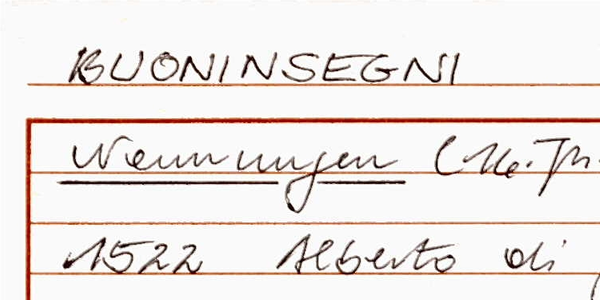 BUONINSEGNI
Nennungen
1522 Alberto di